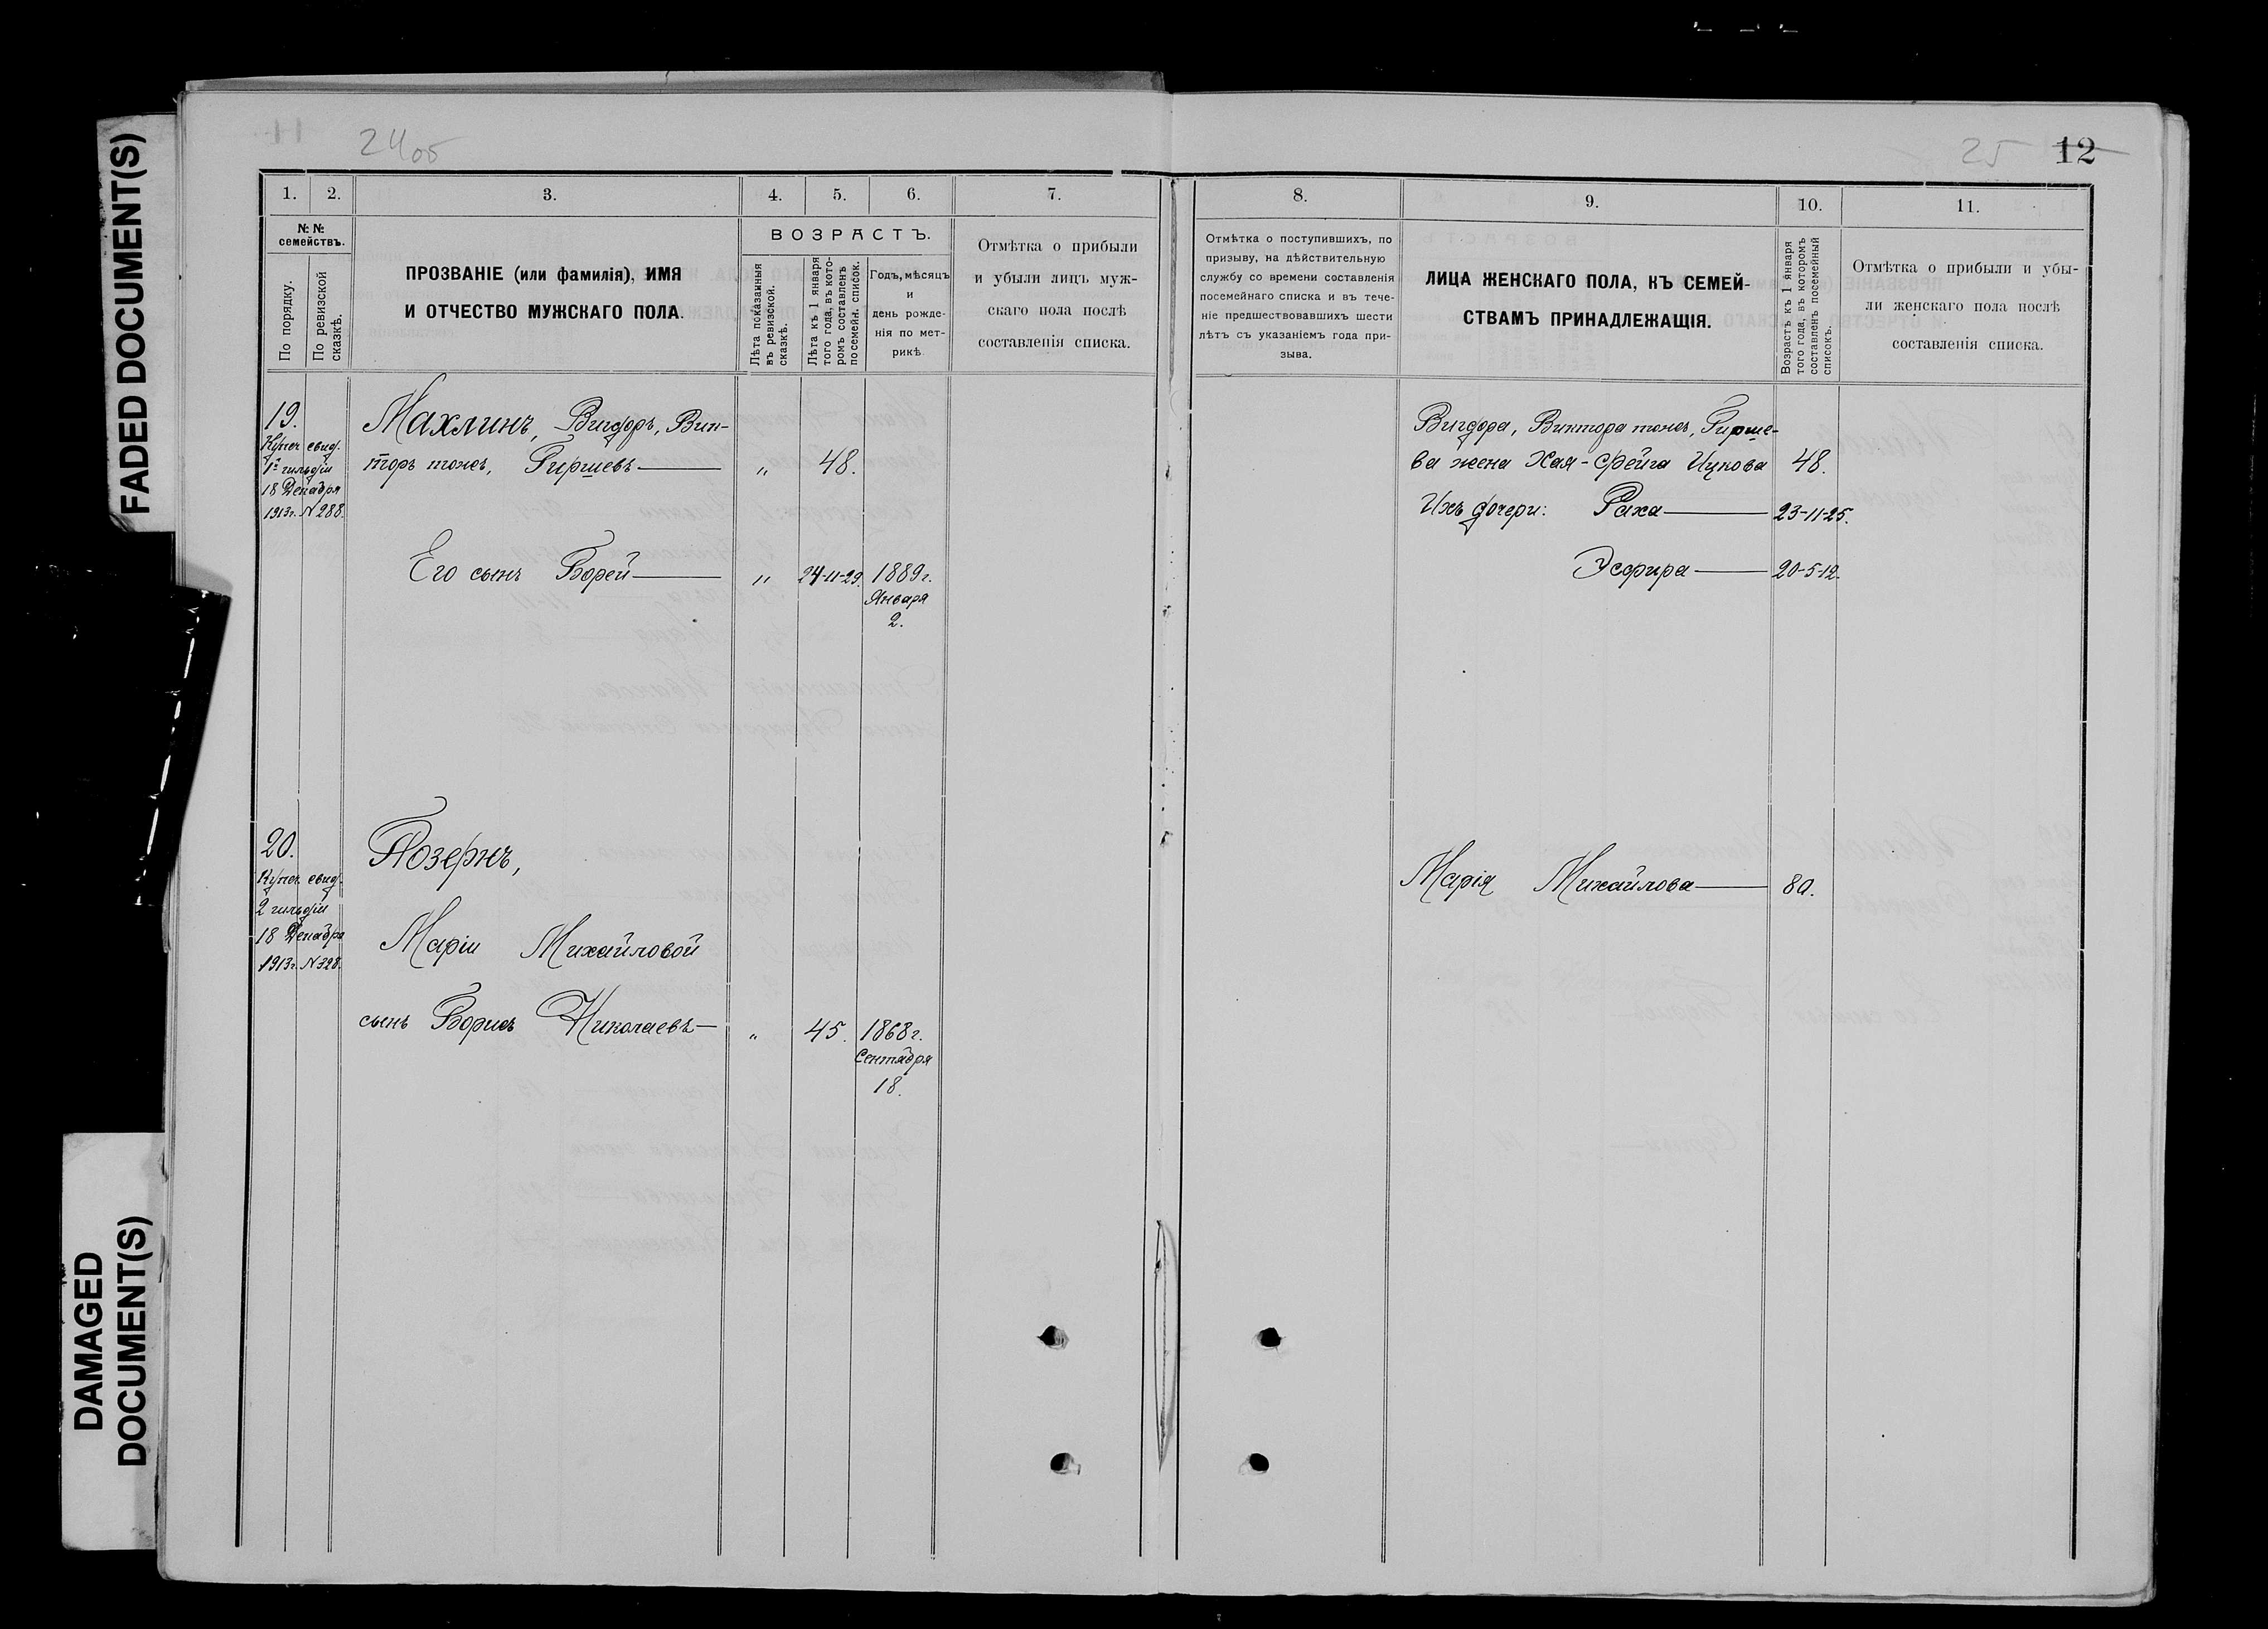 FADED DOCUMENT(S)
DAMAGED
DOCUMENT(S)
11
24об
1. 2. 3. 4. 5. 6. 7.
№№
семействъ.
По порядку.
По ревизской
сказкѣ.
ПРОЗВАНІЕ (или фамилія), ИМЯ
И ОТЧЕСТВО МУЖСКАГО ПОЛА.
ВОЗРАСТЪ.
Лѣта показанныя
въ ревизской.
сказкѣ.
Лѣта къ 1 января
того года, въ кото-
ромъ составленъ
посемейн. список.
Годъ, мѣсяцъ
и
день рожде-
нія по мет-
рикѣ.
Отмѣтка о прибыли
и убыли лицъ муж-
скаго пола послѣ
составленія списка.
19.
Купеч. свид.
1й гильдіи
18 Декабря
1913г. N288.
Махлинъ, Вигдоръ, Вик-
торъ тожъ, Гиршевъ — „ 48.
Его сынъ Борей — „ 24-11-29. 1889г.
Января
2.
20.
Купеч. свид.
2 гильдіи
18 Декабря
1913г. N328.
Позернъ,
Маріи Михайловой
сынъ Борисъ Николаевъ — „ 45. 1868г.
Сентября
18.
25 12
8. 9. 10. 11.
Отмѣтка о поступившихъ, по
призыву, на дѣйствительную
службу со времени составленія
посемейнаго списка и въ тече-
ніе предшествовавшихъ шести
лѣтъ съ указаніемъ года при-
зыва.
ЛИЦА ЖЕНСКАГО ПОЛА, КЪ СЕМЕЙ-
СТВАМЪ ПРИНАДЛЕЖАЩІЯ.
Возрастъ къ 1 января
того года, въ которомъ
составленъ посемейный
списокъ.
Отмѣтка о прибыли и убы-
ли женскаго пола послѣ
составленія списка.
Вигдора, Виктора тожъ, Гирше-
ва жена Хая-Фрейга Ицкова 48.
Ихъ дочери: Раха — 23-11-25.
Эсфира — 20-5-12.
Марія Михайлова — 80.